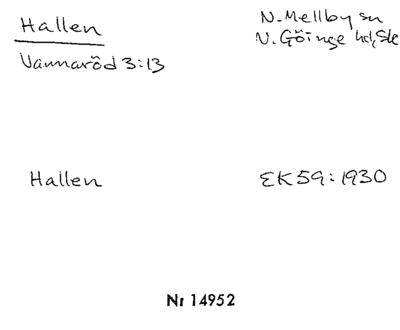 Hallen
N. Mellby sn
N. Göinge hd, Sk
Vannaröd 3:13
Hallen
EK 59:1930
Nr 14952